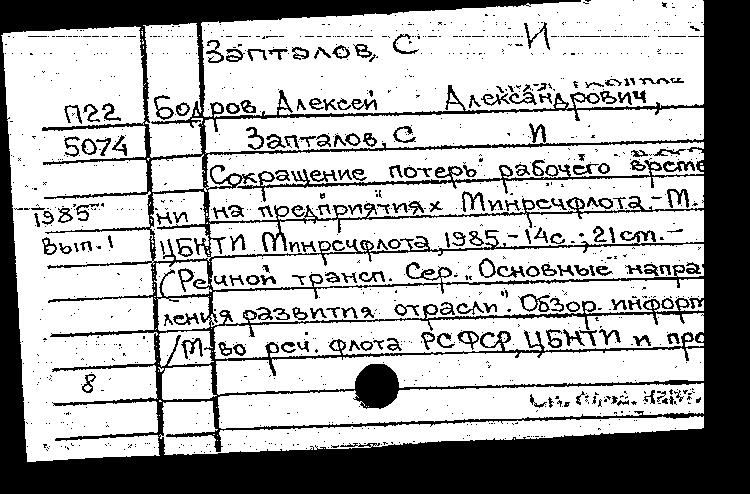 Запталов, С И
П22 Бодров, Алексей Александрович,
5074 Запталов, С И
Сокращение потерь рабочего време
1985 ни на предприятиях Минречфлота.-М.
Вып.1 ЦБНТИ Минречфлота, 1985.-14с.; 21см.-
(Речной трансп. Сер. „Основные направ
ления развития отрасли". Обзор. информ
/М-во реч. флота РСФСР, ЦБНТИ и про
8
См. след. карт.